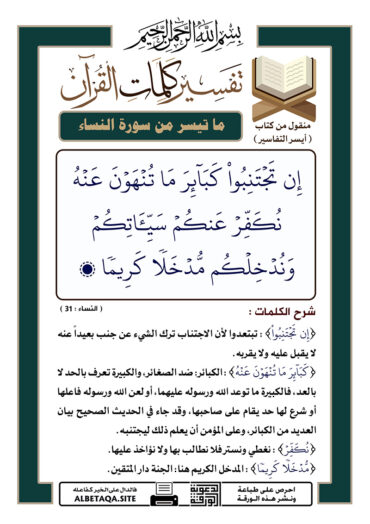 بسم الله الرحمن الرحيم
تفسير كلمات القرآن
ما تيسر من سورة النساء
منقول من كتاب
( أيسر التفاسير )
إِن تَجْتَنِبُوا۟ كَبَآئِرَ مَا تُنْهَوْنَ عَنْهُ
نُكَفِّرْ عَنكُمْ سَيِّـَٔاتِكُمْ
وَنُدْخِلْكُم مُّدْخَلًا كَرِيمًا
( النساء : 31 )
شرح الكلمات :
﴿إِن تَجْتَنِبُوا۟﴾ : تبتعدوا لأن الاجتناب ترك الشيء عن جنب بعيداً عنه
لا يقبل عليه ولا يقربه .
﴿كَبَآئِرَ مَا تُنْهَوْنَ عَنْهُ﴾ : الكبائر: ضد الصغائر، والكبيرة تعرف بالحد لا
بالعد، فالكبيرة ما توعد الله ورسوله عليهما، أو لعن الله ورسوله فاعلها
أو شرع لها حد يقام على صاحبها، وقد جاء في الحديث الصحيح بيان
العديد من الكبائر، وعلى المؤمن أن يعلم ذلك ليجتنبه .
﴿نُكَفِّرْ﴾ : نغطي ونستر فلا نطالب بها ولا نؤاخذ عليها.
﴿مُّدْخَلًا كَرِيمًا﴾ : المدخل الكريم هنا: الجنة دار المتقين .
احرص على طباعة
ونشر هذه الورقة
الورقة الدعوية
فالدال على الخير كفاعله
ALBETAQA.SITE